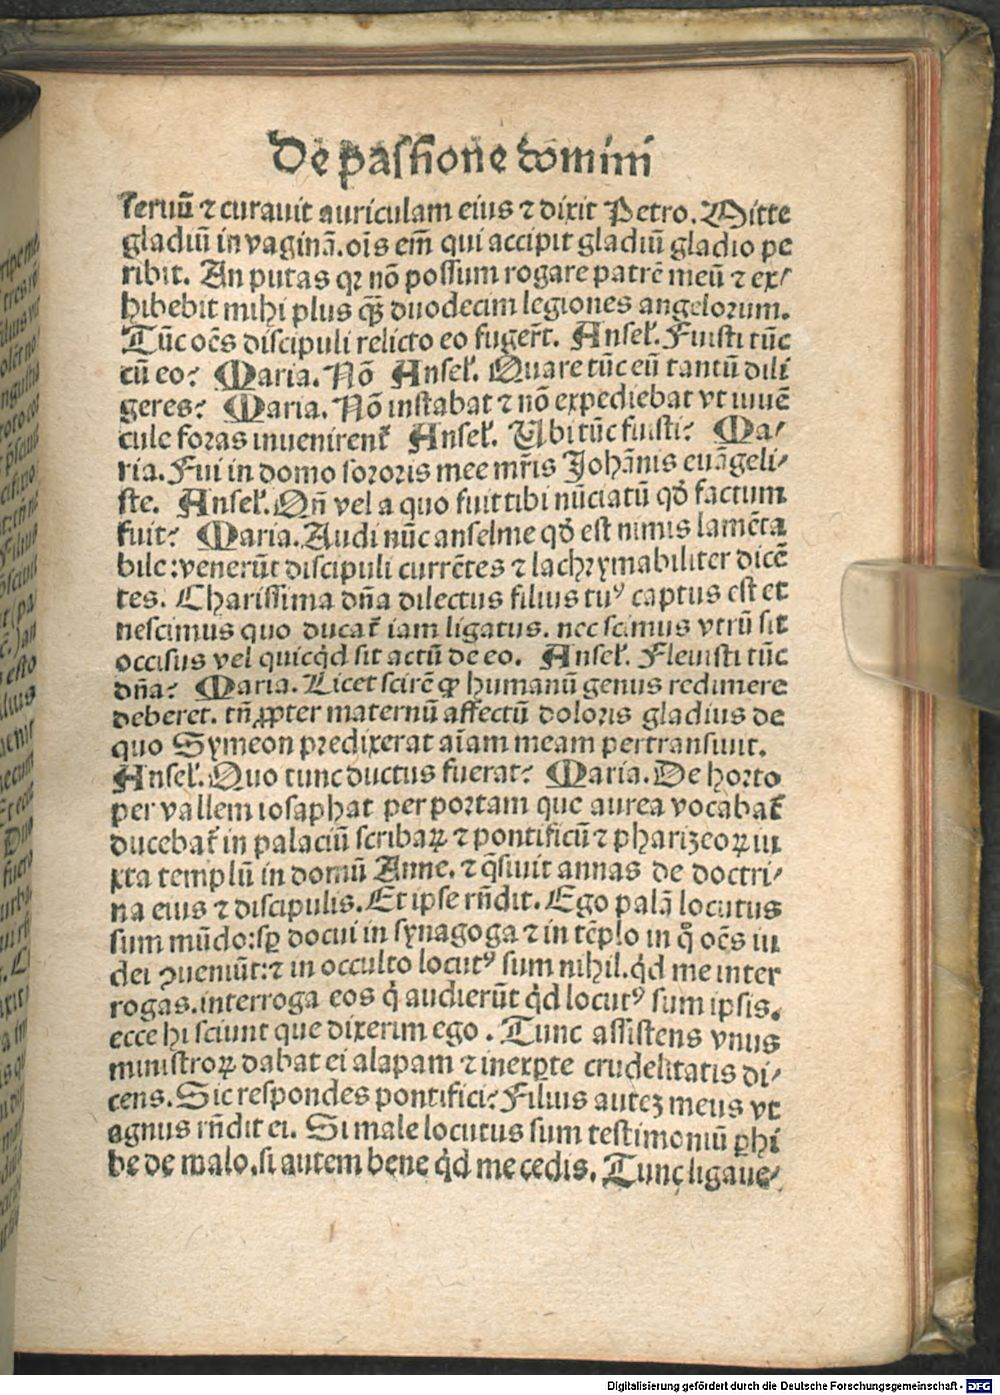 De passione domini
seruū ⁊ curauit auriculam eius ⁊ dixit Petro. Mitte
gladiū in vaginā. oīs em̄ qui accipit gladiū gladio pe
ribit. An putas qꝛ nō possum rogare patrē meū ⁊ ex⸗
hibebit mihi plus qꝫ̄ duodecim legiones angelorum.
Tūc oēs discipuli relicto eo fuger̄t. Anselꝰ. Fuisti tūc
cū eo? Maria. Nō Anselꝰ. Quare tūc eū tantū dili
geres? Maria. Nō instabat ⁊ nō expediebat vt iuuē
cule foras inuenirent᷑ Anselꝰ. Ubi tūc fuisti? Ma⸗
ria. Fui in domo sororis mee mr̄is Johānis euāgeli⸗
ste. Anselꝰ. Qn̄ vel a quo fuit tibi nūciatū qd̄ factum
fuit? Maria. Audi nūc anselme qd̄ est nimis lamēta
bile: venerūt discipuli currētes ⁊ lachrymabiliter dicē
tes. Charissima dn̄a dilectus filius tuꝰ captus est et
nescimus quo ducat᷑ iam ligatus. nec scimus vtrū sit
occisus vel quicqd̄ sit actū de eo. Anselꝰ. Fleuisti tūc
dn̄a? Maria. Licet scirē ꝙ humanū genus redimere
deberet. tn̄ ꝓpter maternū affectū doloris gladius de
quo Symeon predixerat aīam meam pertransiuit.
Anselꝰ. Quo tunc ductus fuerat? Maria. De horto
per vallem iosaphat per portam que aurea vocabat᷑
ducebat᷑ in palaciū scribaꝝ ⁊ pontificū ⁊ pharizeoꝝ iu
xta templū in domū Anne. ⁊ q̄siuit annas de doctri⸗
na eius ⁊ discipulis. Et ipse rn̄dit. Ego palā locutus
sum mūdo: sꝑ docui in synagoga ⁊ in tēplo in qͦ oēs iu
dei ꝯueniūt: ⁊ in occulto locutꝰ sum nihil. qd̄ me inter
rogas. interroga eos qͥ audierūt qd̄ locutꝰ sum ipsis.
ecce hi sciunt que dixerim ego. Tunc assistens vnus
ministroꝝ dabat ei alapam ⁊ inexꝑte crudelitatis di⸗
cens. Sic respondes pontifici? Filius auteꝫ meus vt
agnus rn̄dit ei. Si male locutus sum testimoniū ꝑhi
be de malo. si autem bene qd̄ me cedis. Tunc ligaue⸗
Digitalisierung gefördert durch die Deutsche Forschungsgemeinschaft - DFG